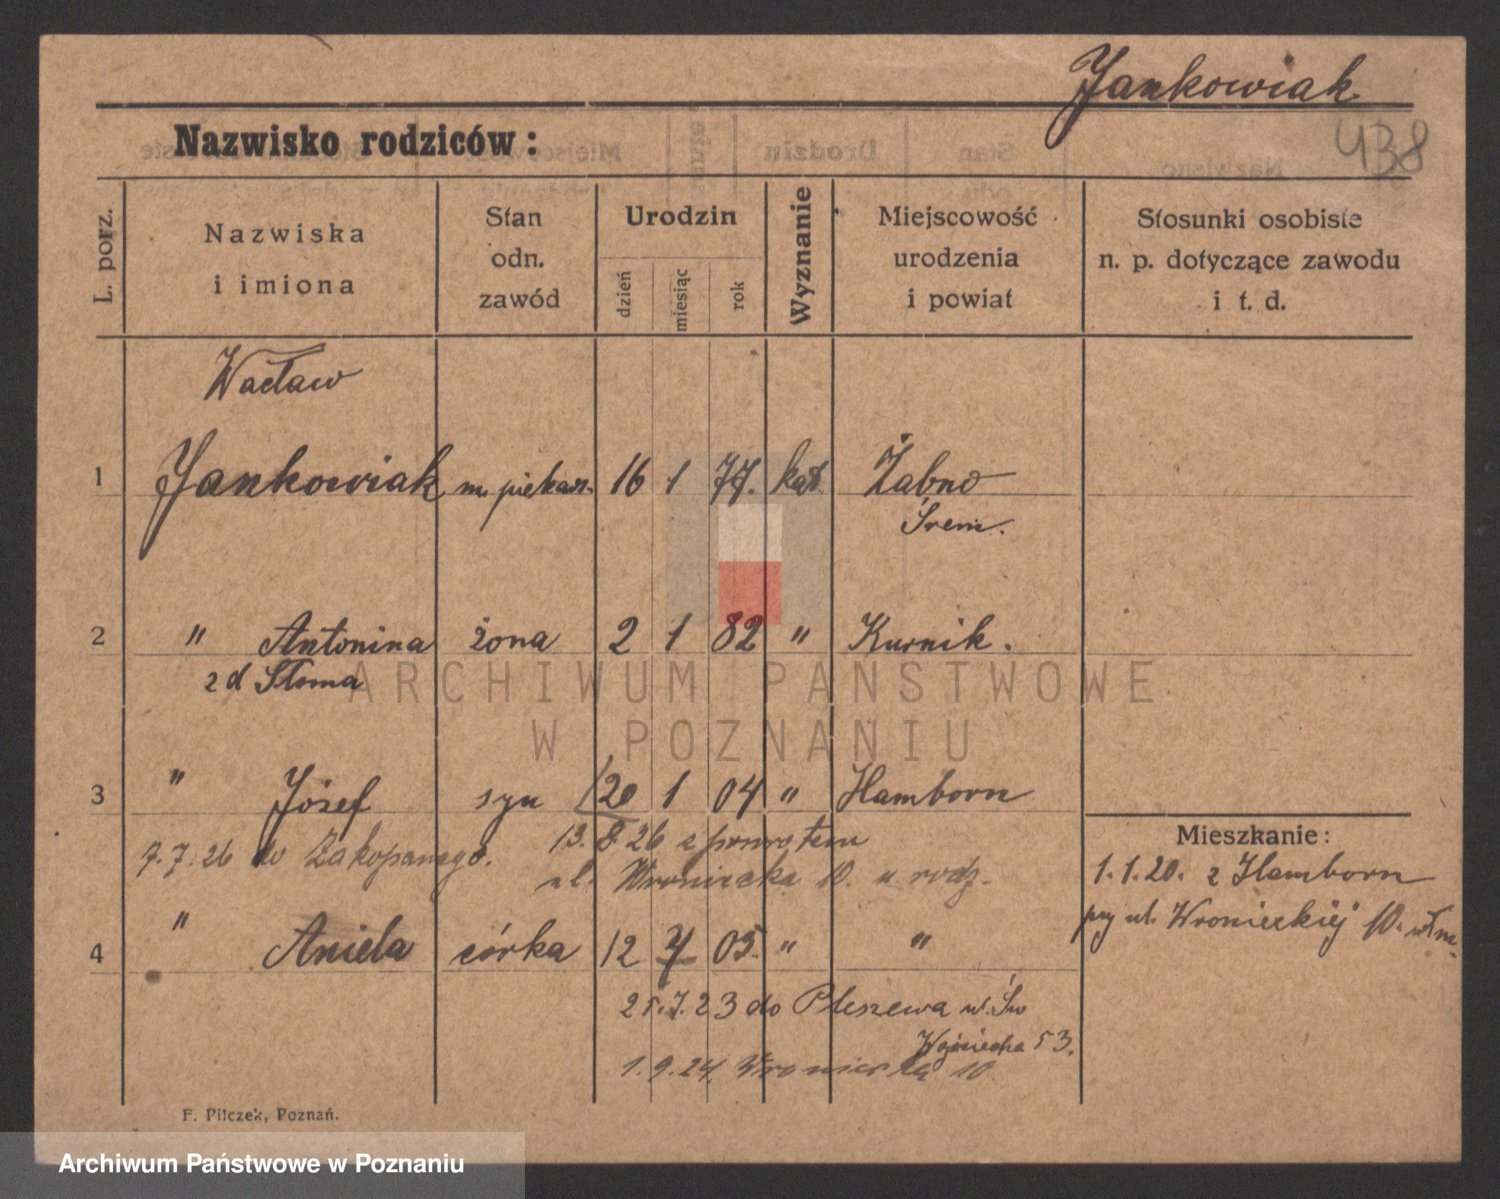 Jankowiak
438
Nazwisko rodziców:
L. porz.
Nazwiska
i imiona
Stan
odn.
zawód
Urodzin
dzień
miesiąc
rok
Wyznanie
Miejscowość
urodzenia
i powiat
Stosunki osobiste
n. p. dotyczące zawodu
i t. d.
Wacław
1 Jankowiak m. piekarz. 16 1 77. kat. Żabno
Śrem.
2 " Antonina żona 2 1 82 " Kurnik.
z d Słoma
ARCHIWUM PAŃSTWOWE
W POZNANIU
3 " Józef syn 20 1 04 " Hamborn
13. 8. 26 z powrotem
7.7.26 do Zakopanego.
ul. Wroniecka 10. u rodz.
Mieszkanie:
1.1.20. z Hamborn
przy ul. Wronieckiej 10.
4 " Aniela córka 12 7 05. " "
25.7.23 do Pleszewa ul. Św
Wojciecha 53.
1.9.24. Wroniecka 10.
F. Pilczek, Poznań.
Archiwum Państwowe w Poznaniu